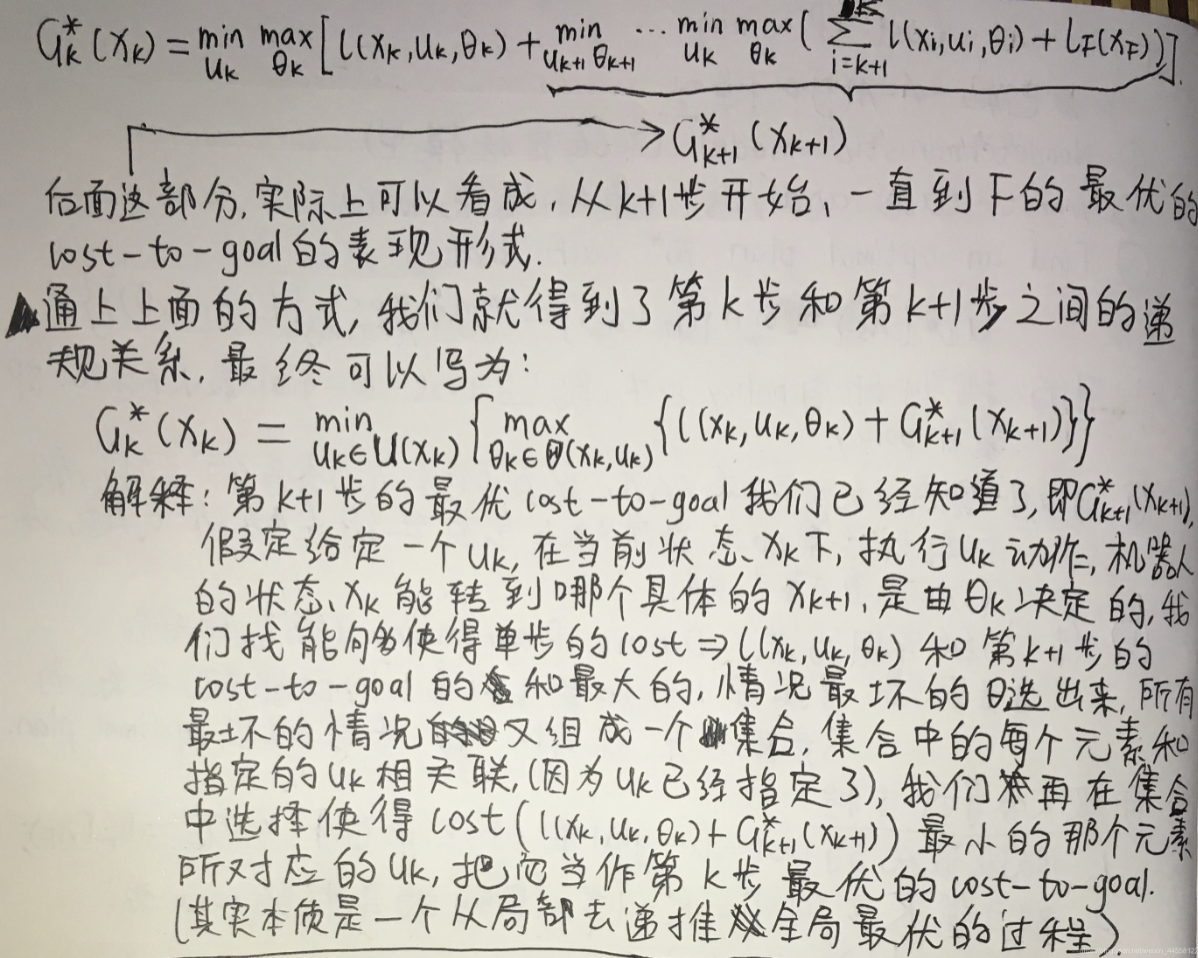 G*k(xk) = min uk max θk [l(xk, uk, θk) + min uk+1 θk+1 ... min uk max θk ( K Σ i=k+1 l(xi, ui, θi) + lF(xF))].
→ G*k+1(xk+1)
后面这部分,实际上可以看成,从k+1步开始、一直到F的最优的
cost-to-goal的表现形式.
通上上面的方式,我们就得到了第k步和第k+1步之间的递
规关系,最终可以写为:
G*k(xk) = min uk∈U(xk) { max θk∈Θ(xk,uk) { l(xk, uk, θk) + G*k+1(xk+1)}}
解释:第k+1步的最优cost-to-goal我们已经知道了,即G*k+1(xk+1),
假定给定一个uk,在当前状态xk下,执行uk动作,机器人
的状态xk能转到哪个具体的xk+1,是由θk决定的,我
们找能够使得单步的cost⇒l(xk, uk, θk)和第k+1步的
cost-to-goal的和最大的,情况最坏的θ选出来,所有
最坏的情况又组成一个集合,集合中的每个元素和
指定的uk相关联,(因为uk已经指定了),我们再在集合
中选择使得cost(l(xk, uk, θk)+G*k+1(xk+1))最小的那个元素
所对应的uk,把它当作第k步最优的cost-to-goal.
(其实本质是一个从局部去递推全局最优的过程).